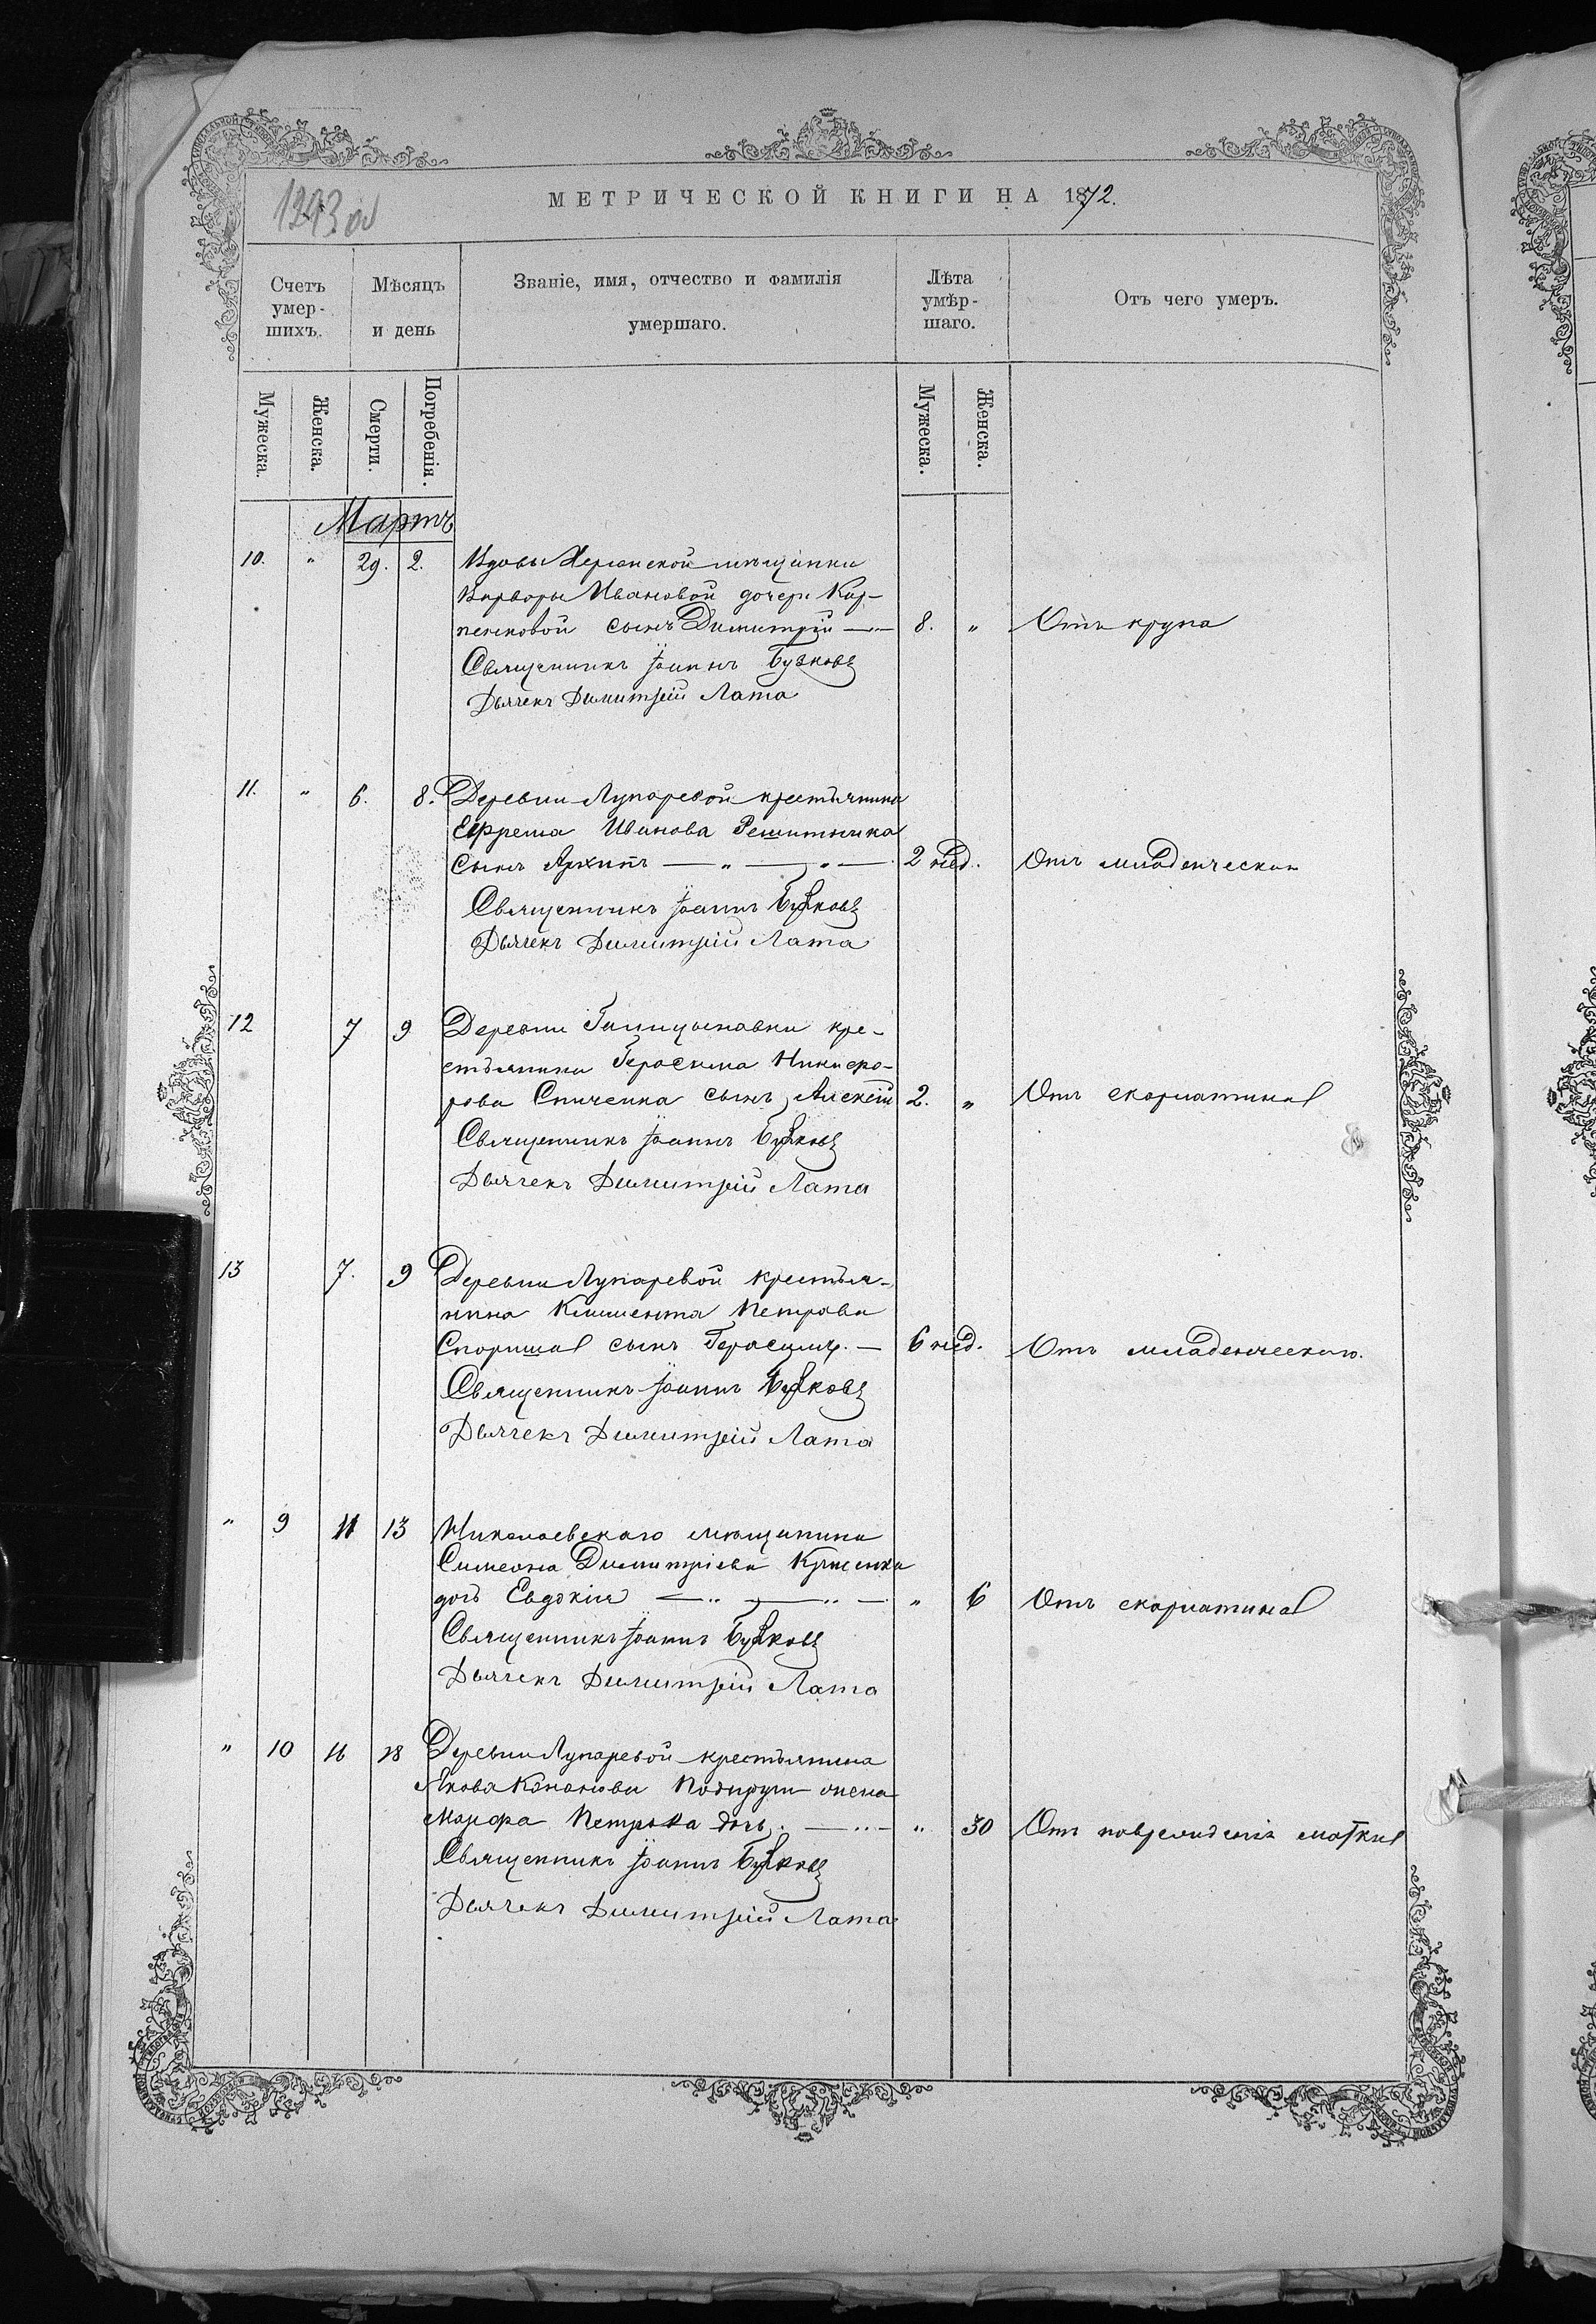 1293 об
МЕТРИЧЕСКОЙ КНИГИ НА 1872.
Счетъ умер-шихъ.
Мѣсяцъ и день
Званіе, имя, отчество и фамилія умершаго.
Лѣта умѣр-шаго.
Отъ чего умеръ.
Мужеска.
Женска.
Смерти.
Погребенія.
Мужеска.
Женска.
Мартъ
10. " 29. 2. Вдовы Херсонской мѣщанки
Варвары Ивановой дочери Кар-
пенковой сынъ Димитрій 8. " Отъ крупа
Священникъ Іоаннъ
Дьячекъ Димитрій Лата
11. " 6. 8. Деревни Лупаревой крестьянина
Ефрема Иванова Решитника
сынъ Архипъ 2 нед. Отъ младенческаго
Священникъ Іоаннъ
Дьячекъ Димитрій Лата
12 7 9 Деревни Галицыновки кре-
стьянина Герасима Никифо-
рова Спиченка сынъ Алексій 2. " Отъ скарлатины
Священникъ Іоаннъ
Дьячекъ Димитрій Лата
13 7. 9 Деревни Лупаревой крестья-
нина Климента Петрова
Спориша сынъ Герасимъ. 6 нед. Отъ младенческаго.
Священникъ Іоаннъ
Дьячекъ Димитрій Лата
" 9 11 13 Николаевскаго мѣщанина
Симеона Димитріева
дочь Евдокія " 6 Отъ скарлатины
Священникъ Іоаннъ
Дьячекъ Димитрій Лата
" 10 16 18 Деревни Лупаревой крестьянина
Якова Кононова жена
Марфа Петрова дочь. " 30 Отъ поврежденія матки
Священникъ Іоаннъ
Дьячекъ Димитрій Лата